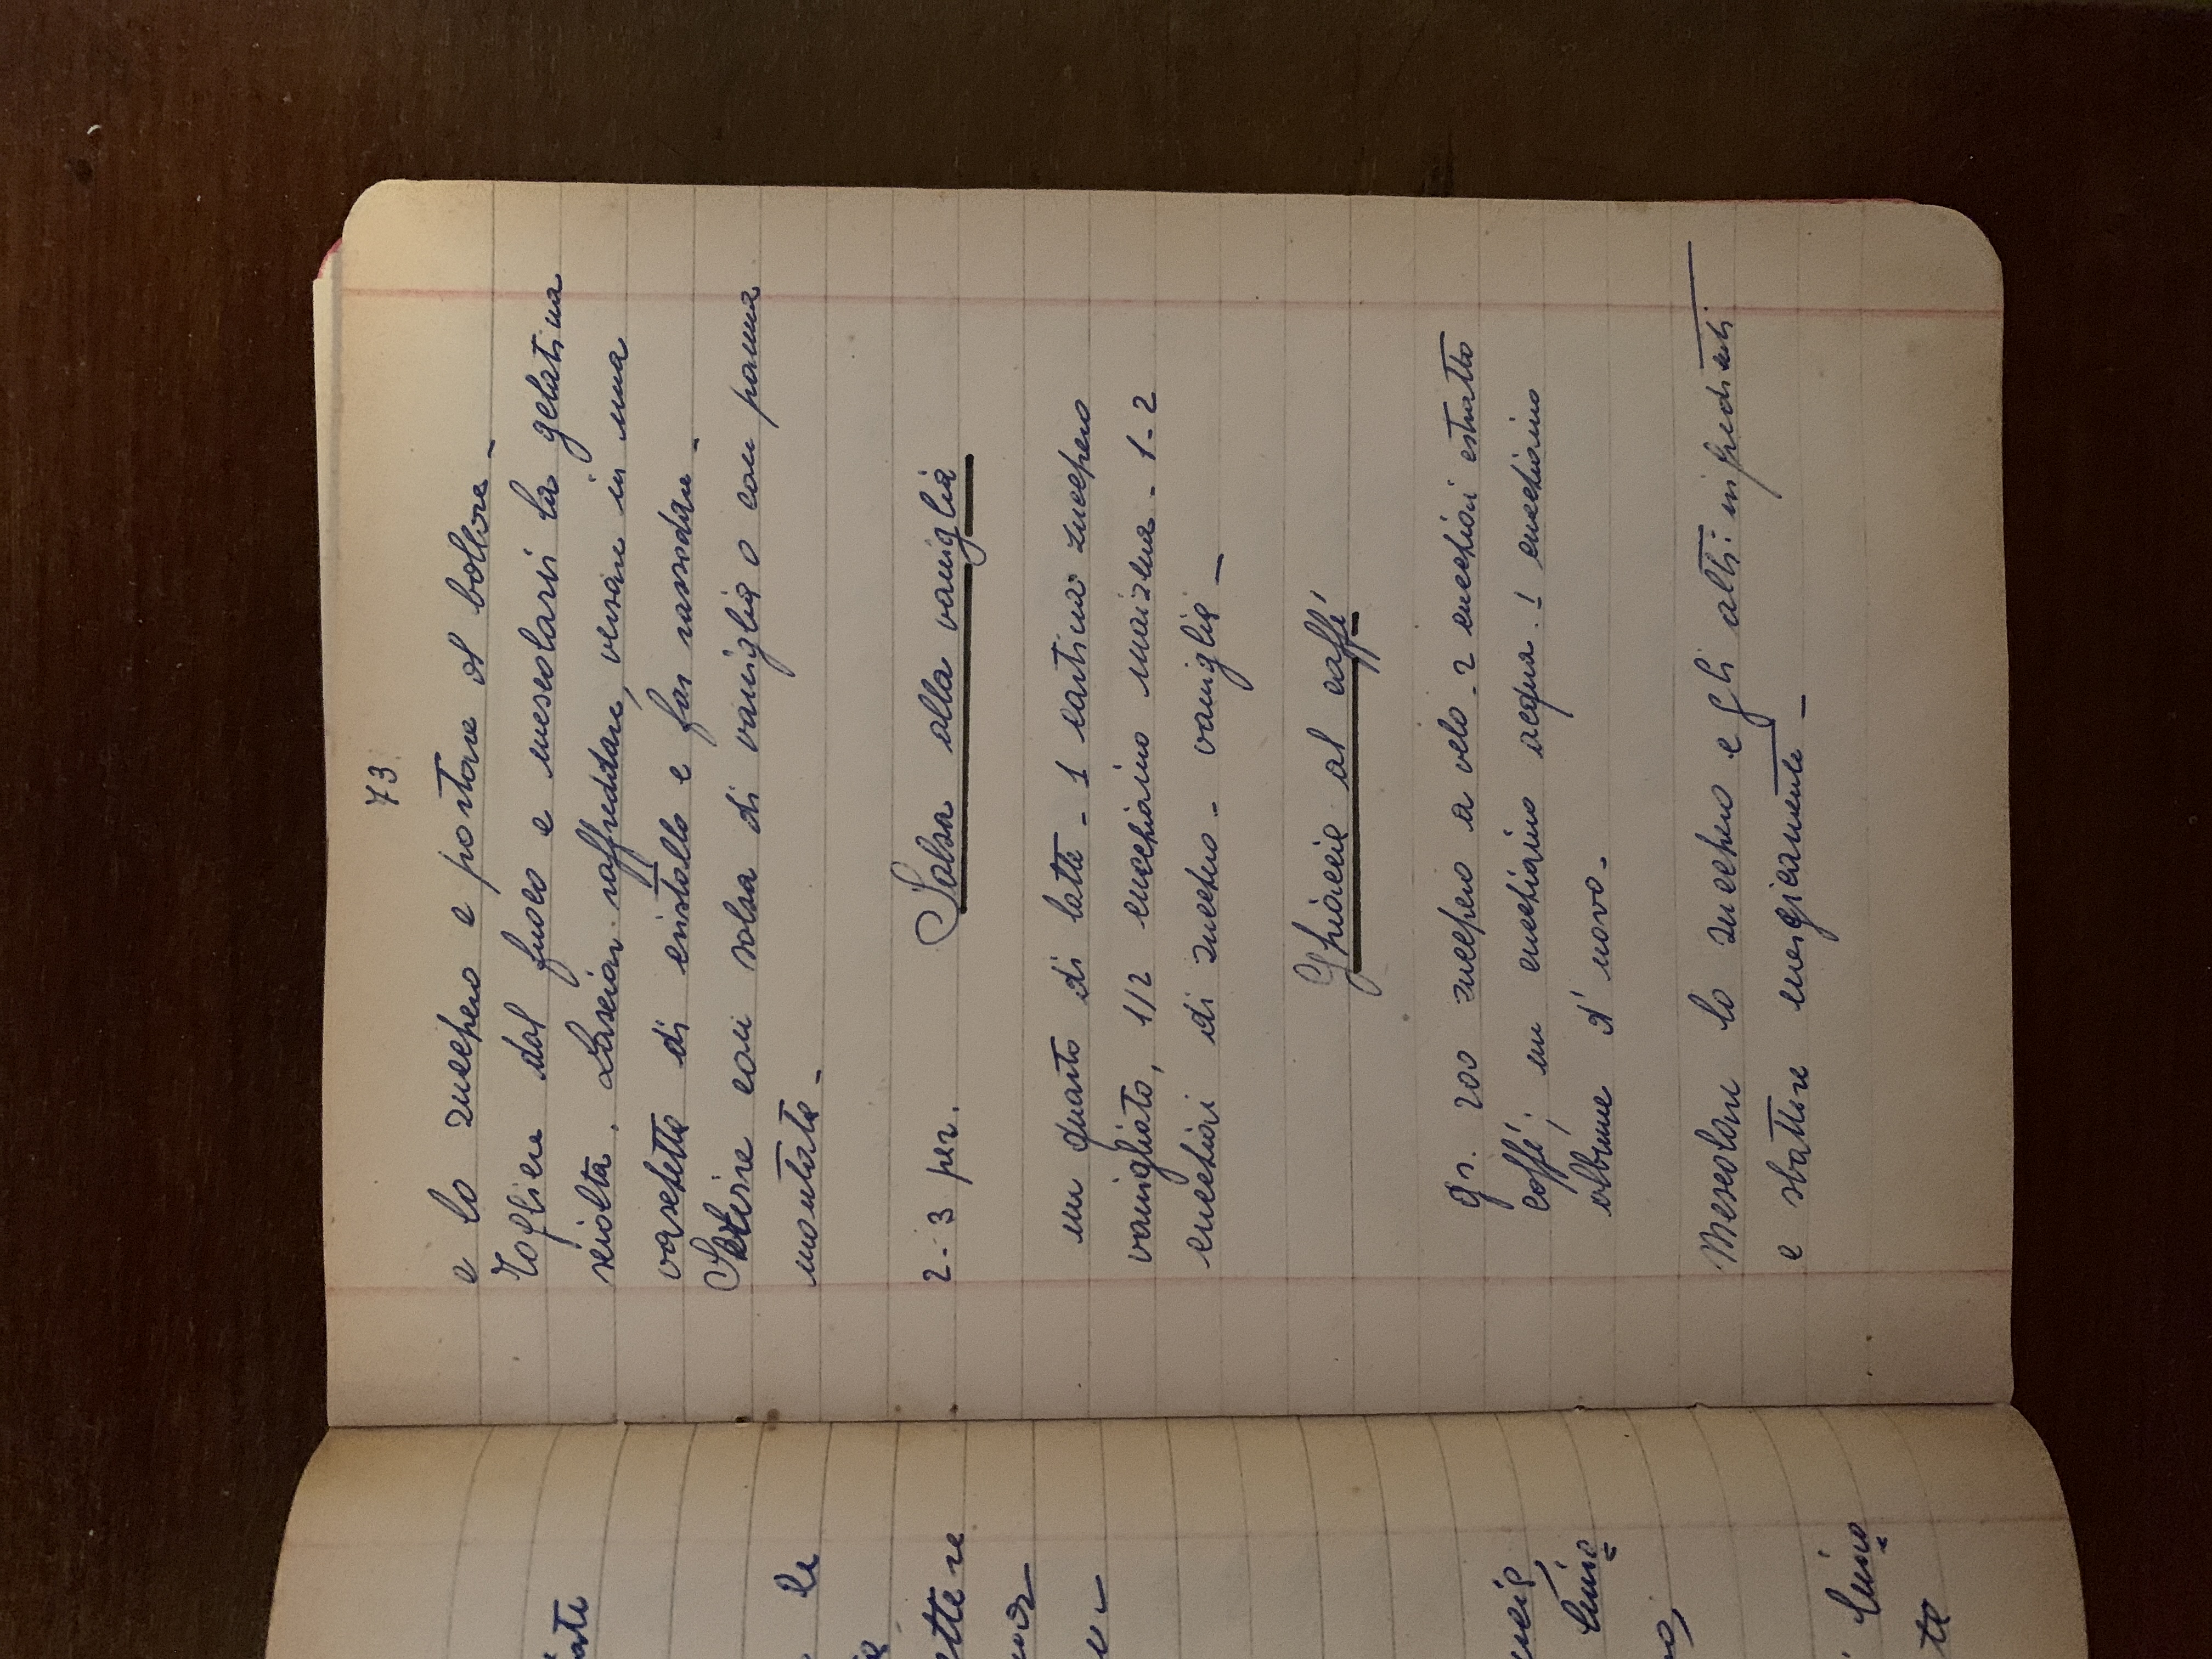 ate
le
ettere
73.
e lo zucchero e portare al bollore -
Togliere dal fuoco e mescolarvi la gelatina
sciolta. Lasciar raffreddare, versare in una
vaschetta di cristallo e far rassodare -
Servire con salsa di vaniglia o con panna
montata -
2-3 per. Salsa alla vaniglia
un quarto di latte - 1 cartina zucchero
vanigliato, 1/2 cucchiaino maizena - 1-2
cucchiai di zucchero - vaniglia -
Ghiaccia al caffé
gr. 200 zucchero a velo - 2 cucchiai estratto
caffé; un cucchiaino acqua. 1 cucchiaino
albume d'uovo -
Mescolare lo zucchero e gli altri ingredienti
e sbattere energicamente -